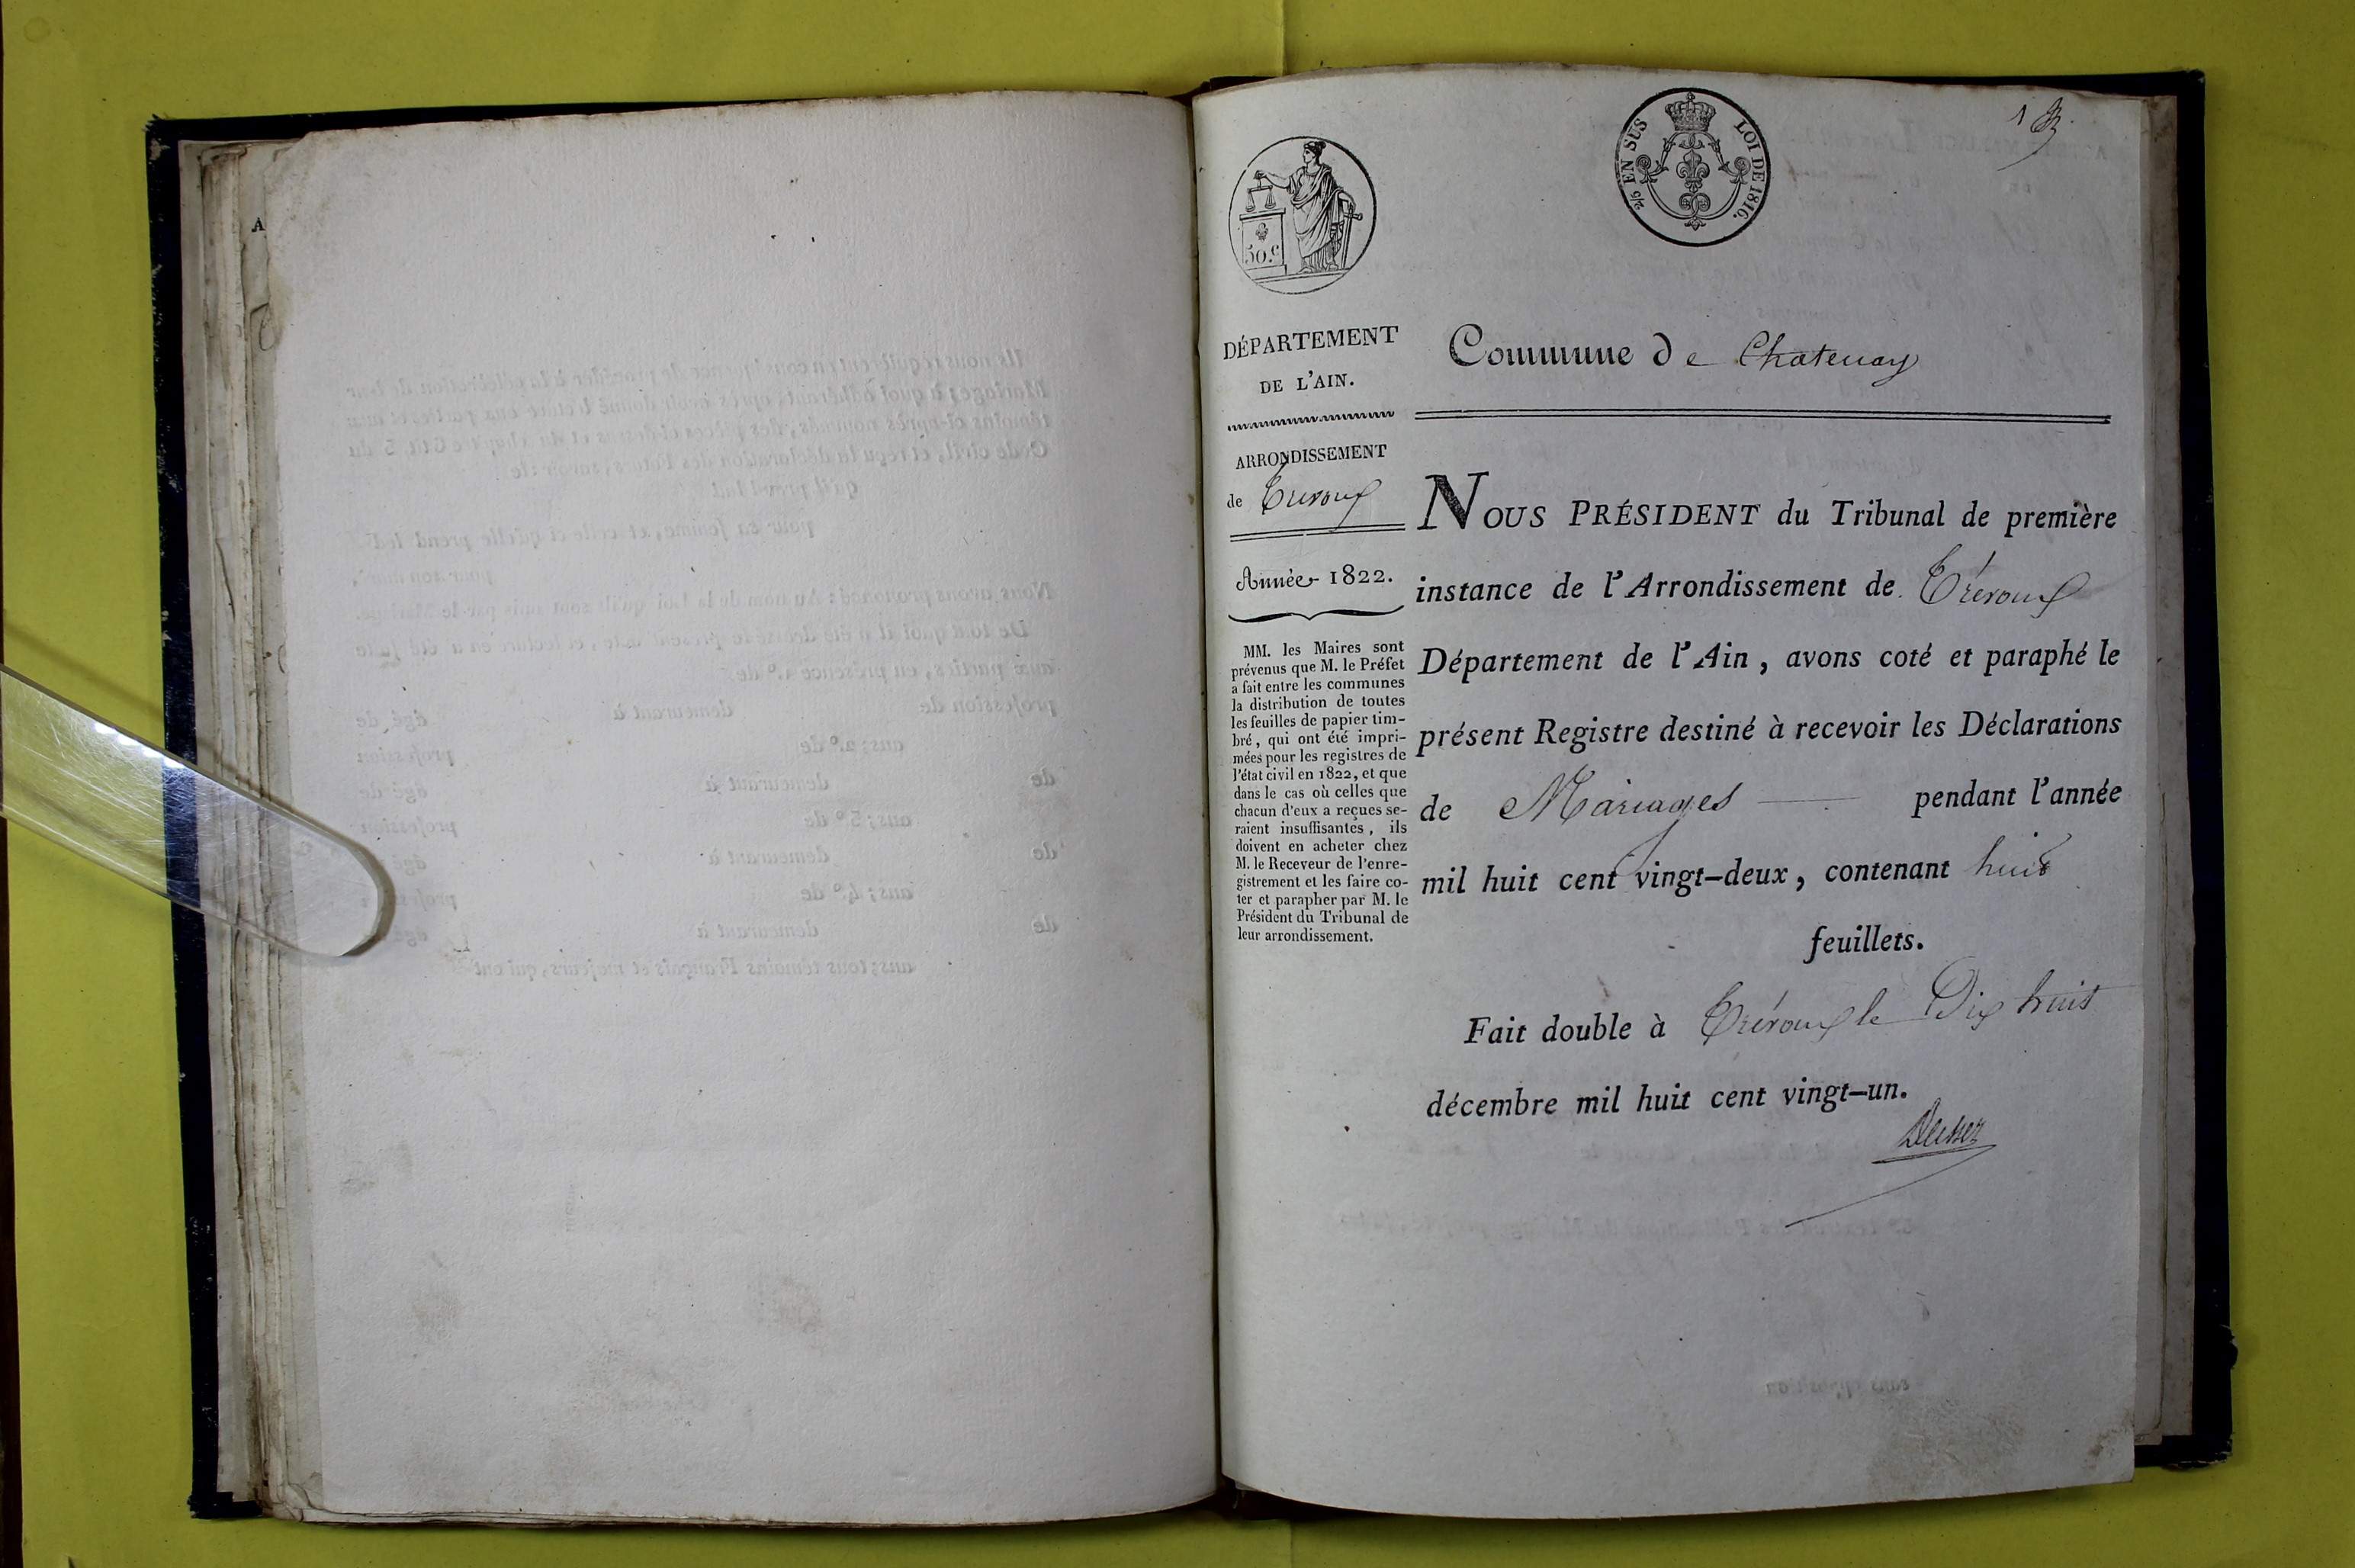 A
2/5 EN SUS
LOI DE 1816.
1
50.c
DÉPARTEMENT
DE L'AIN.
ARRONDISSEMENT
de Trevoux
Année 1822.
MM. les Maires sont
prévenus que M. le Préfet
a fait entre les communes
la distribution de toutes
les feuilles de papier tim-
bré, qui ont été impri-
mées pour les registres de
l'état civil en 1822, et que
dans le cas où celles que
chacun d'eux a reçues se-
raient insuffisantes, ils
doivent en acheter chez
M. le Receveur de l'enre-
gistrement et les faire co-
ter et parapher par M. le
Président du Tribunal de
leur arrondissement.
Commune de Chatenay
NOUS PRÉSIDENT du Tribunal de première
instance de l'Arrondissement de Trévoux
Département de l'Ain, avons coté et paraphé le
présent Registre destiné à recevoir les Déclarations
de Mariages — pendant l'année
mil huit cent vingt-deux, contenant huit
feuillets.
Fait double à Trévoux le Dix huit
décembre mil huit cent vingt-un.